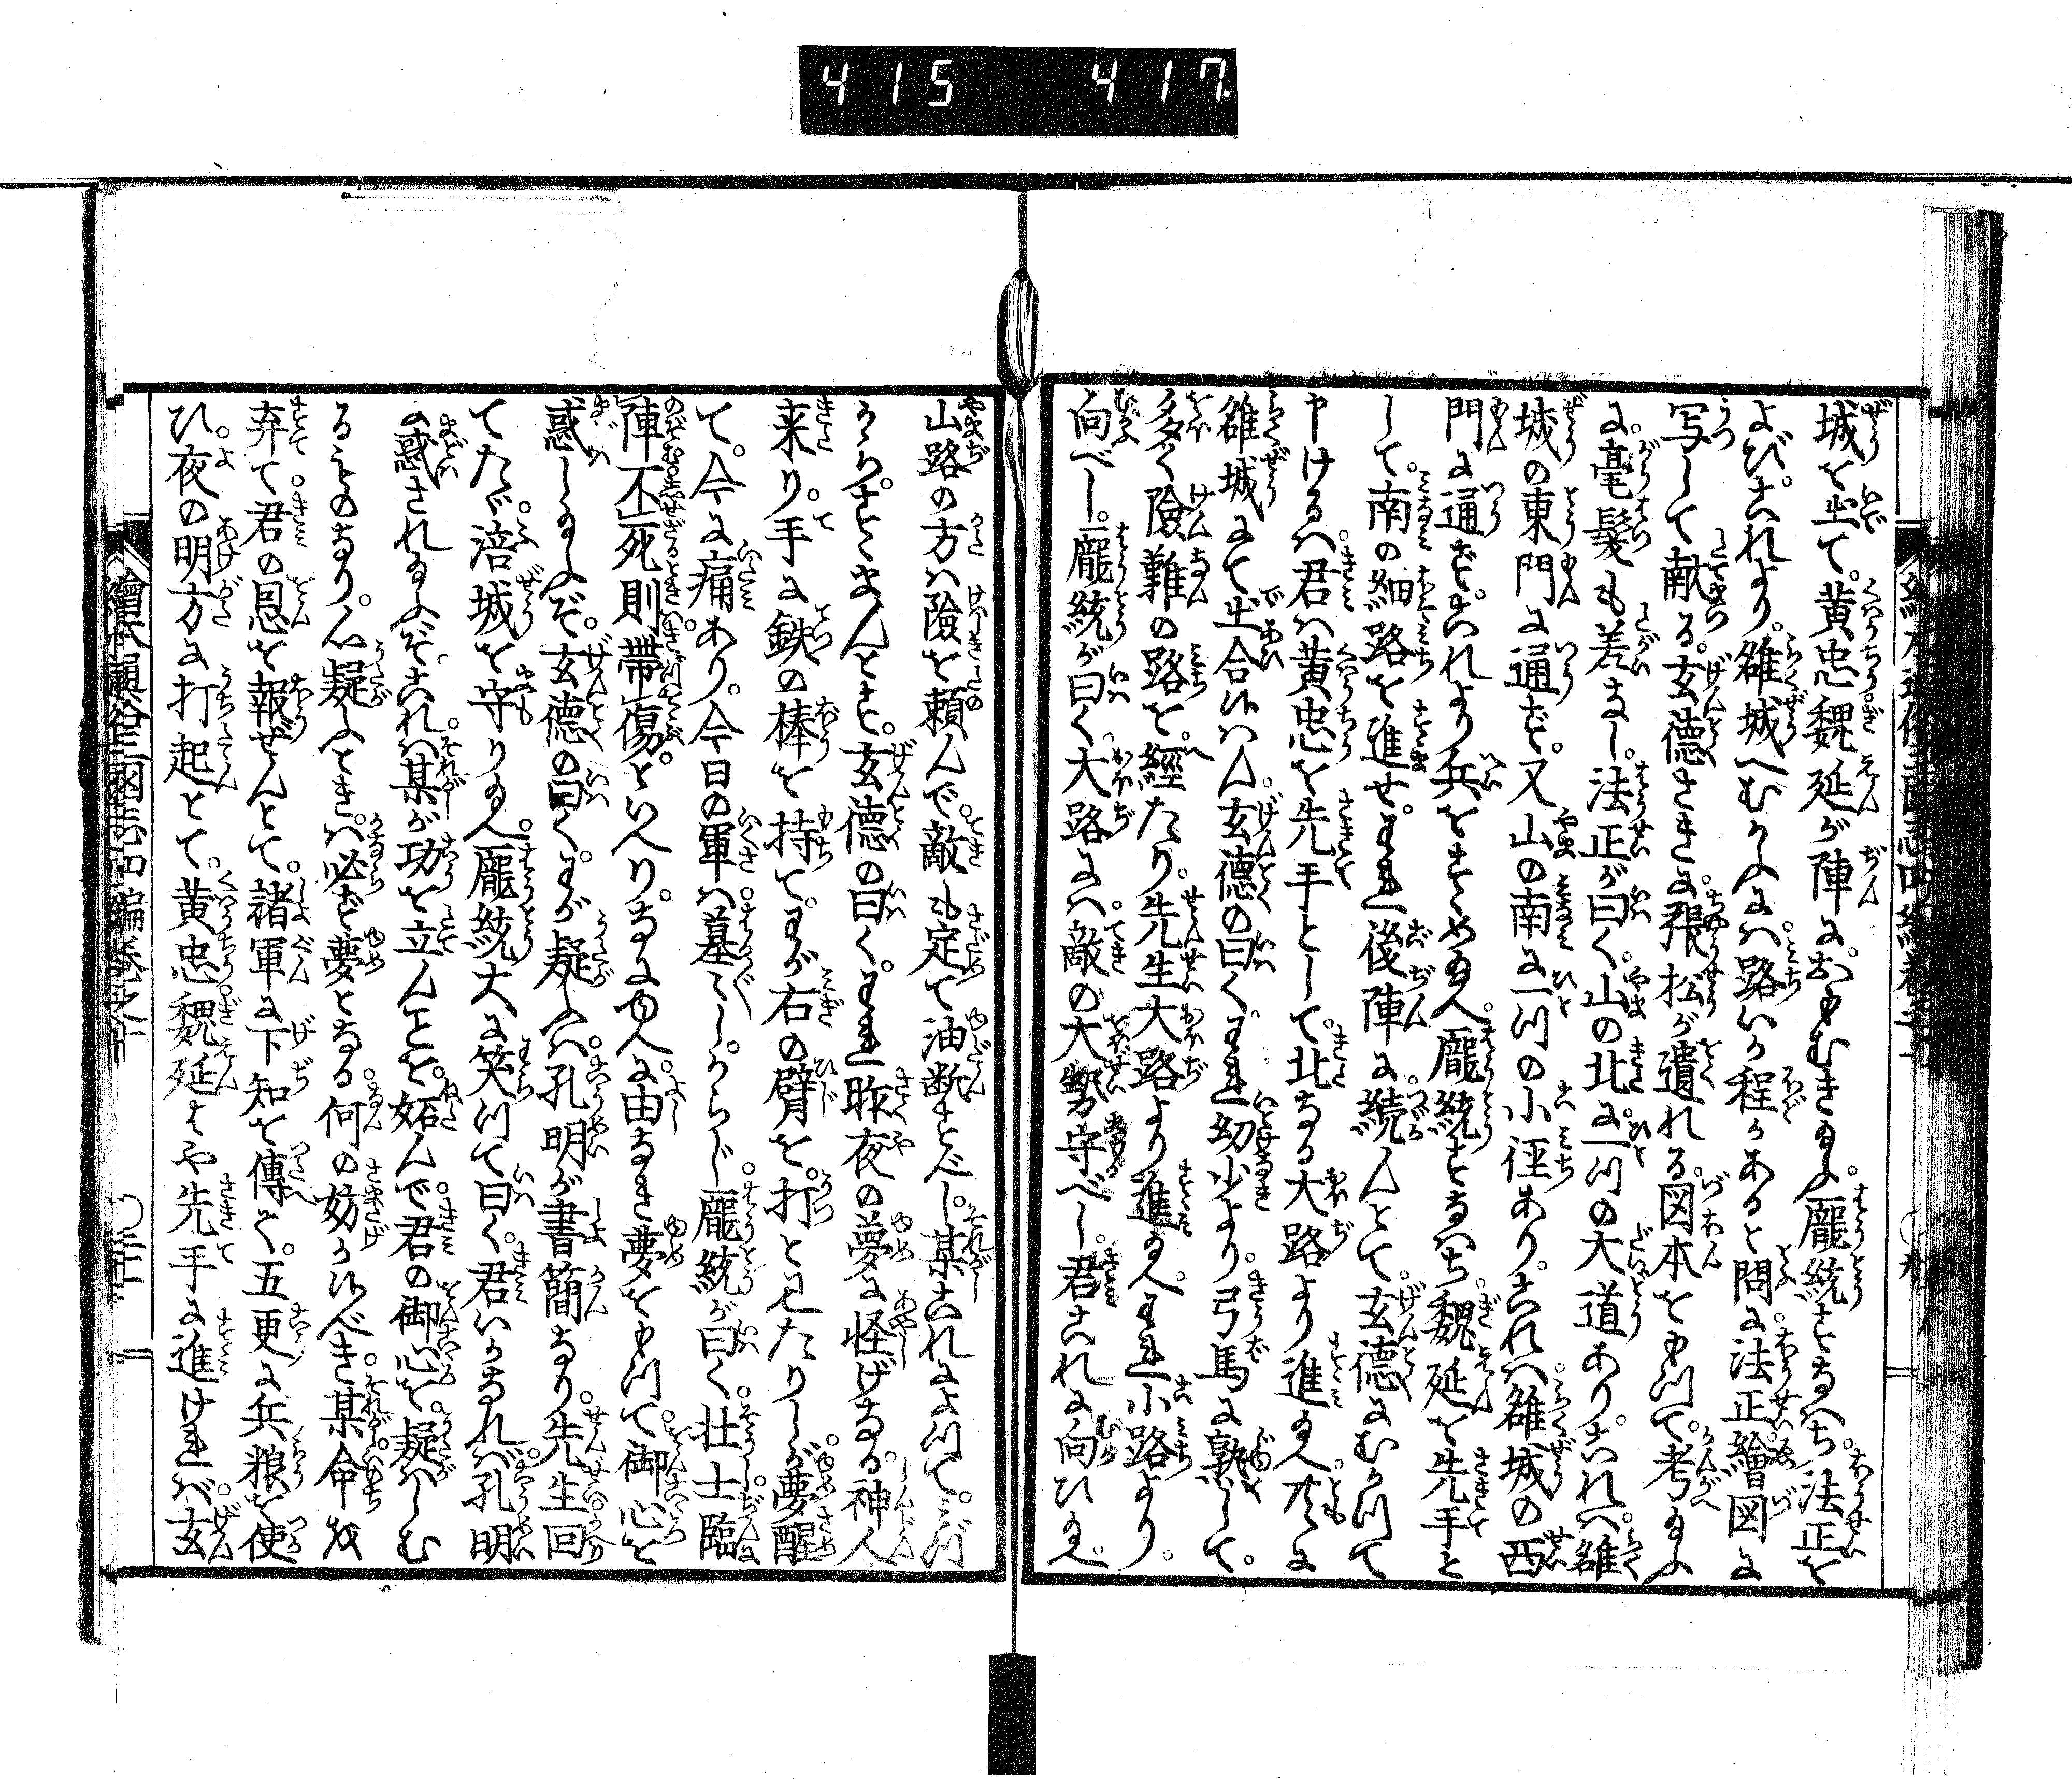 415 417
城を出て。黄忠魏延が陣におもむき給ふ。龐統すなはち。法正を
よび。これより。雒城へむかふには路いか程かあると問に。法正繪図に
写して献る。玄徳さきに張松が遺れる図本をもつて。考給ふ
に。毫髪も差なし。法正が曰く。山の北に。一つの大道あり。これは。雒
城の東門に通ず。又山の南に一つの小径あり。これは。雒城の西
門に通ず。これより兵をすゝめ給へ。龐統すなはち。魏延を先手と
して。南の細路を進せ。われ後陣に続んとて。玄徳にむかつて
申けるは。君は黄忠を先手として。北なる大路より進給へ。共に
雒城にて出合候はん。玄徳の曰く。われ幼少より。弓馬に熟して。
多く險難の路を。經たり。先生大路より進給へ。われ小路より。
向べし。龐統が曰く。大路には。敵の大勢守べし。君これに向ひ給へ。
山路の方は險を頼んで。敵も定て油断すべし。某これによつて。みづ
からさゝまんとす。玄徳の曰く。われ昨夜の夢に怪げなる神人
来り。手に鉄の棒を持て。わが右の臂を。打と見たりしが。夢醒
て。今に痛あり。今日の軍は。墓〳〵しからじ。龐統が曰く。壮士臨
陣不死則帶傷。といへり。なにゆへに由なき夢をもつて。御心を
惑し給ふぞ。玄徳の曰く。わが疑ふは。孔明が書簡なり。先生回
てたゞ。涪城を守り給へ。龐統大に笑つて曰く。君いかなれば。孔明
に惑され給ふぞ。これは。某が功を立んことを。妬んで。君の御心を。疑はしむ
るものなり。心疑ふときは。必ず夢となる。何の妨か候べき。某。命を
弃て。君の恩を報ぜんとて。諸軍に下知を傳て。五更に兵粮を使
ひ。夜の明方に打起とて。黄忠魏延はや先手に進ければ。玄